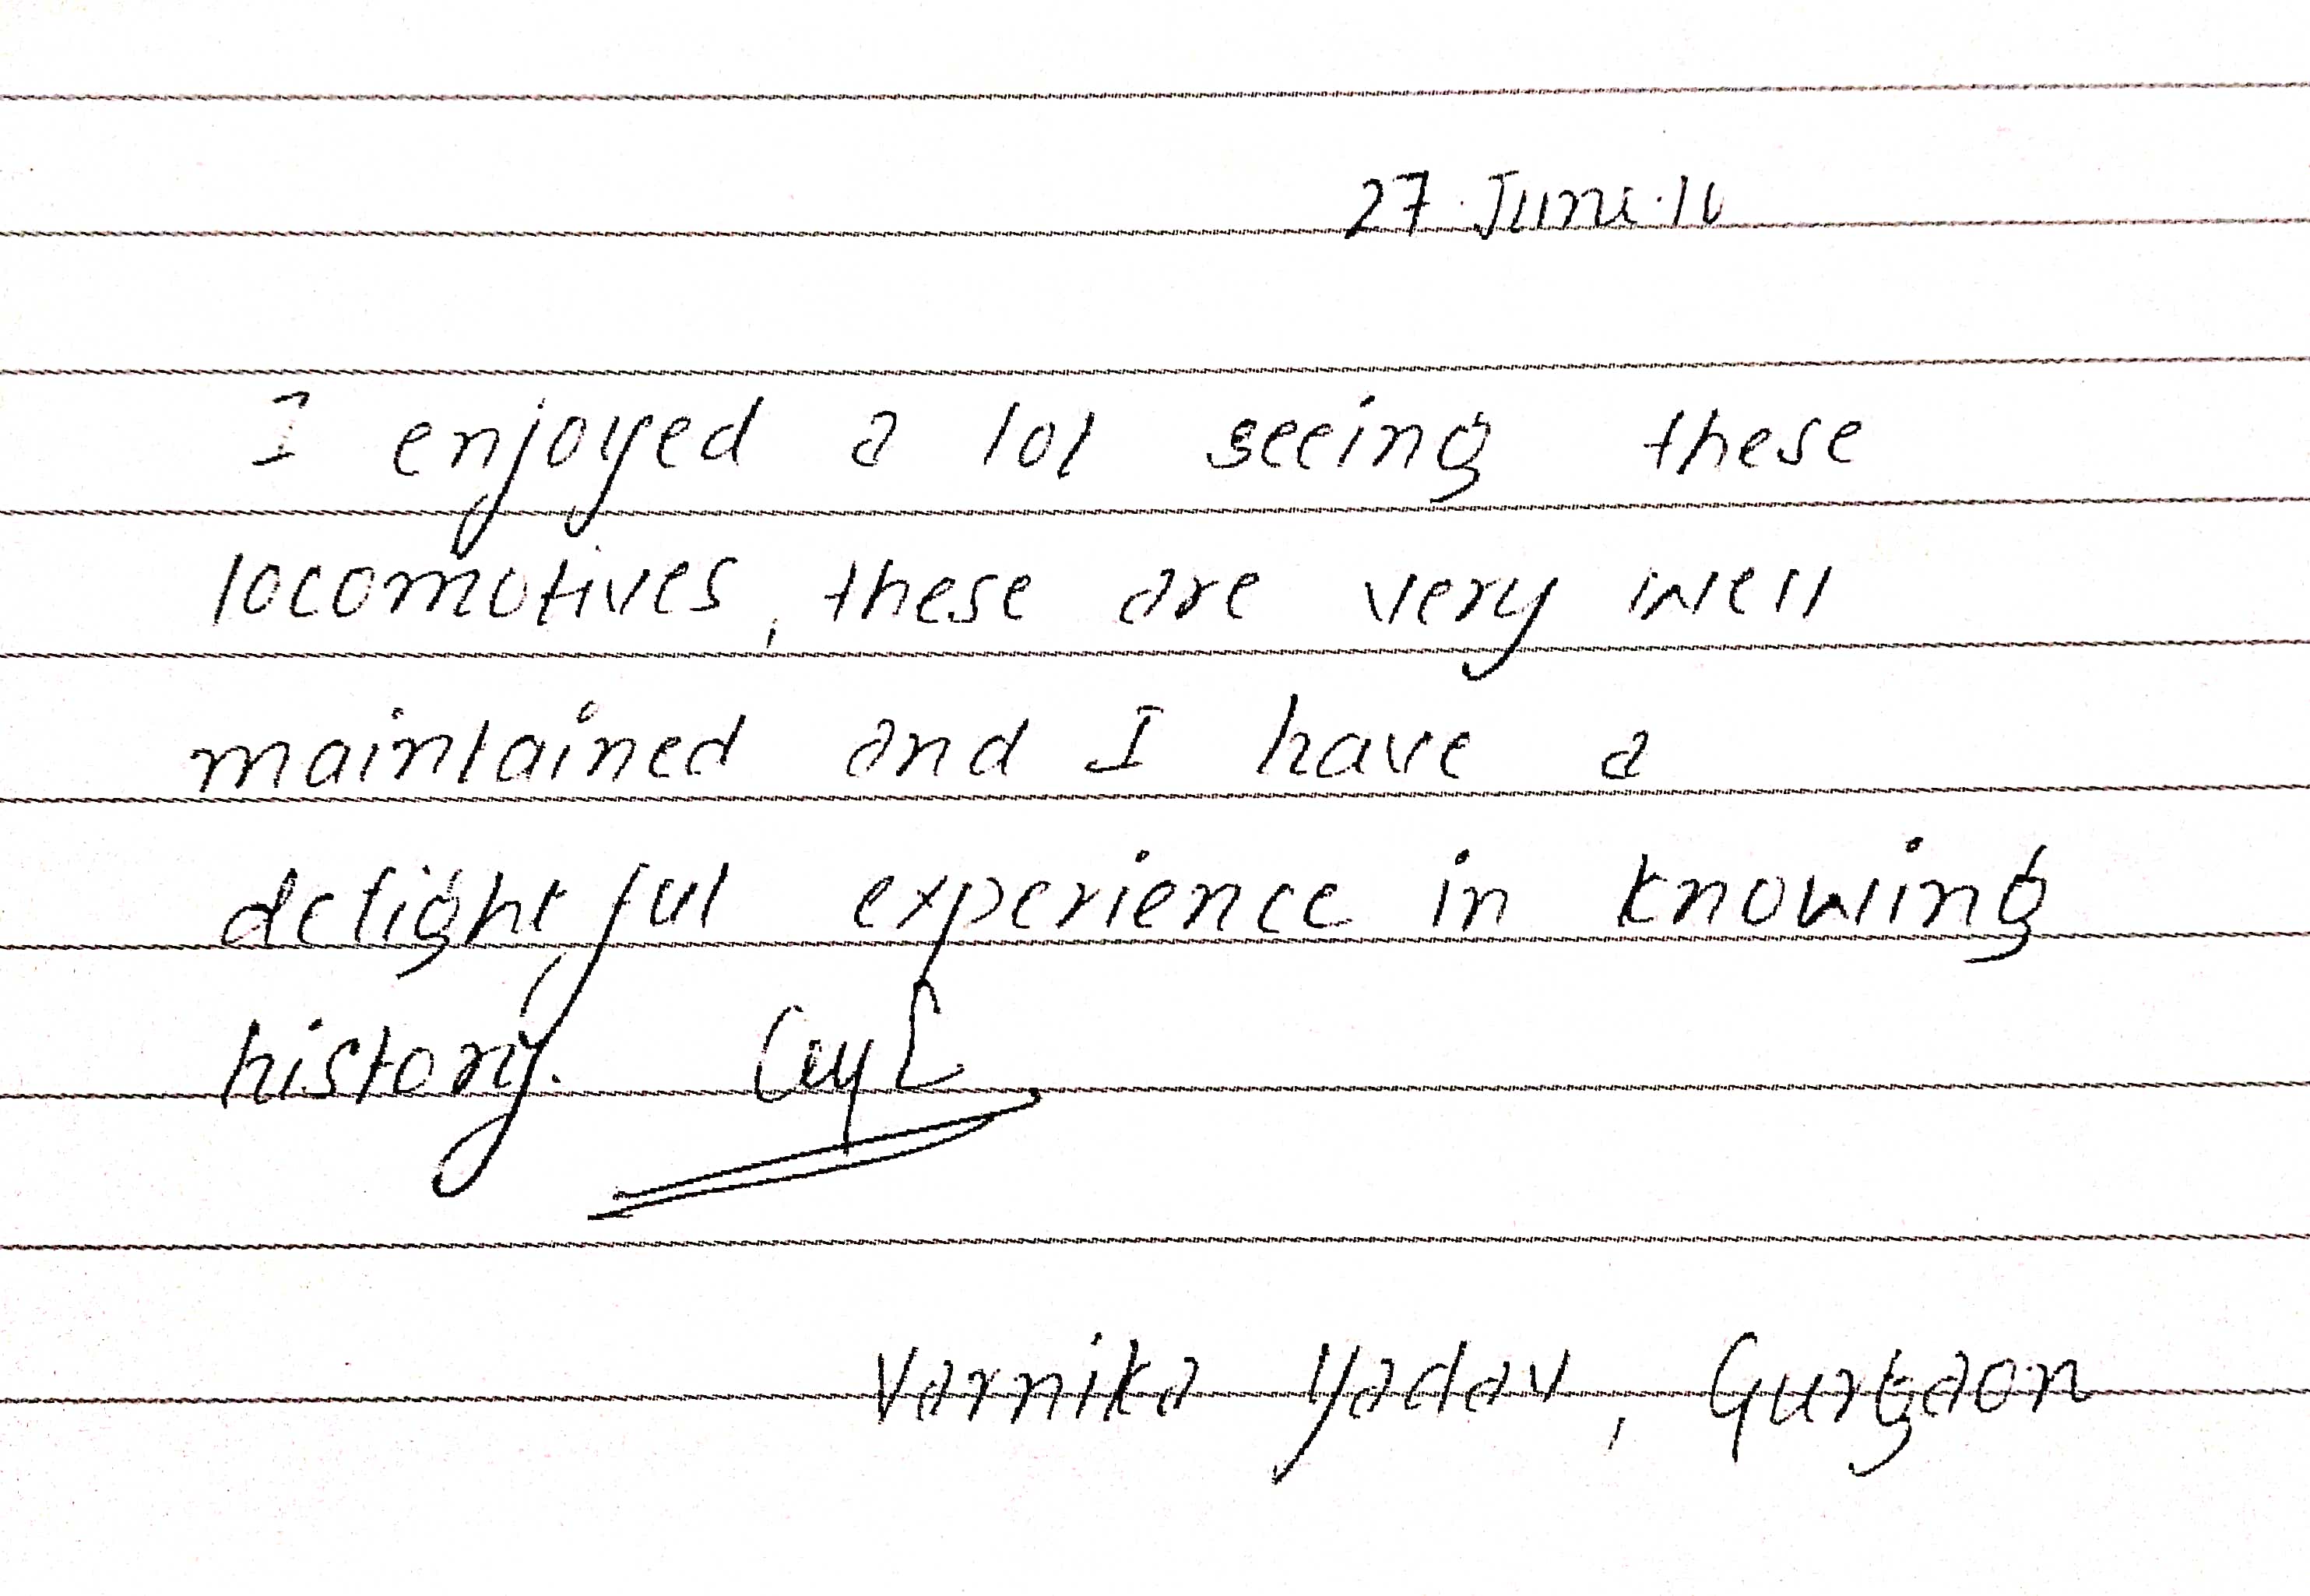 27 June 16
I enjoyed a lot seeing these
locomotives, these are very well
maintained and I have a
delightful experience in knowing
history.
Varnika Yadav, Gurgaon